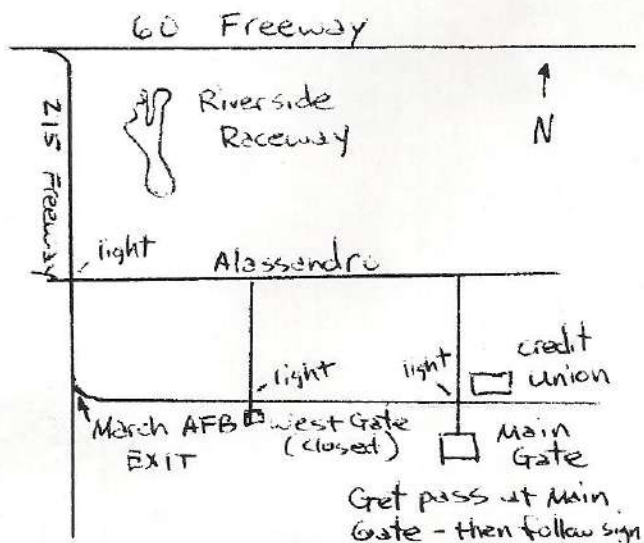 60 Freeway
215 Freeway
Riverside
Raceway
N
light
Alassandro
light
light
credit
union
March AFB
EXIT
West Gate
(closed)
Main
Gate
Get pass at Main
Gate - then follow sign